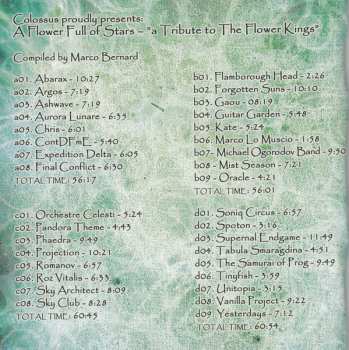 Colossus proudly presents:
A Flower Full of Stars – "a Tribute to The Flower Kings"
Compiled by Marco Bernard
a01. Abarax - 10:27
a02. Argos - 7:19
a03. Ashwave - 7:19
a04. Aurora Lunare - 6:35
a05. Chris - 6:01
a06. ContDFmE - 5:40
a07. Expedition Delta - 6:05
a08. Final Conflict - 6:30
TOTAL TIME: 56:17
b01. Flamborough Head - 2:26
b02. Forgotten Suns - 10:10
b03. Gaou - 08:19
b04. Guitar Garden - 5:48
b05. Kate - 5:24
b06. Marco Lo Muscio - 1:58
b07- Michael Ogorodov Band - 9:50
b08 - Mist Season - 7:21
b09 - Oracle - 4:21
TOTAL TIME: 56:01
c01. Orchestre Celesti - 5:24
c02. Pandora Theme - 4:43
c03. Phaedra - 9:49
c04. Projection - 10:21
c05. Romanov - 6:37
c06. Roz Vitalis - 6:33
c07. Sky Architect - 8:09
c08. Sky Club - 8:28
TOTAL TIME: 60:45
d01. Soniq Circus - 6:57
d02. Spoton - 5:16
d03. Supernal Endgame - 11:49
d04. Tabula Smaragdina - 4:51
d05. The Samurai of Prog - 9:49
d06. Tinyfish - 3:59
d07. Unitopia - 3:15
d08. Vanilla Project - 9:22
d09. Yesterdays - 7:12
TOTAL TIME: 60:54